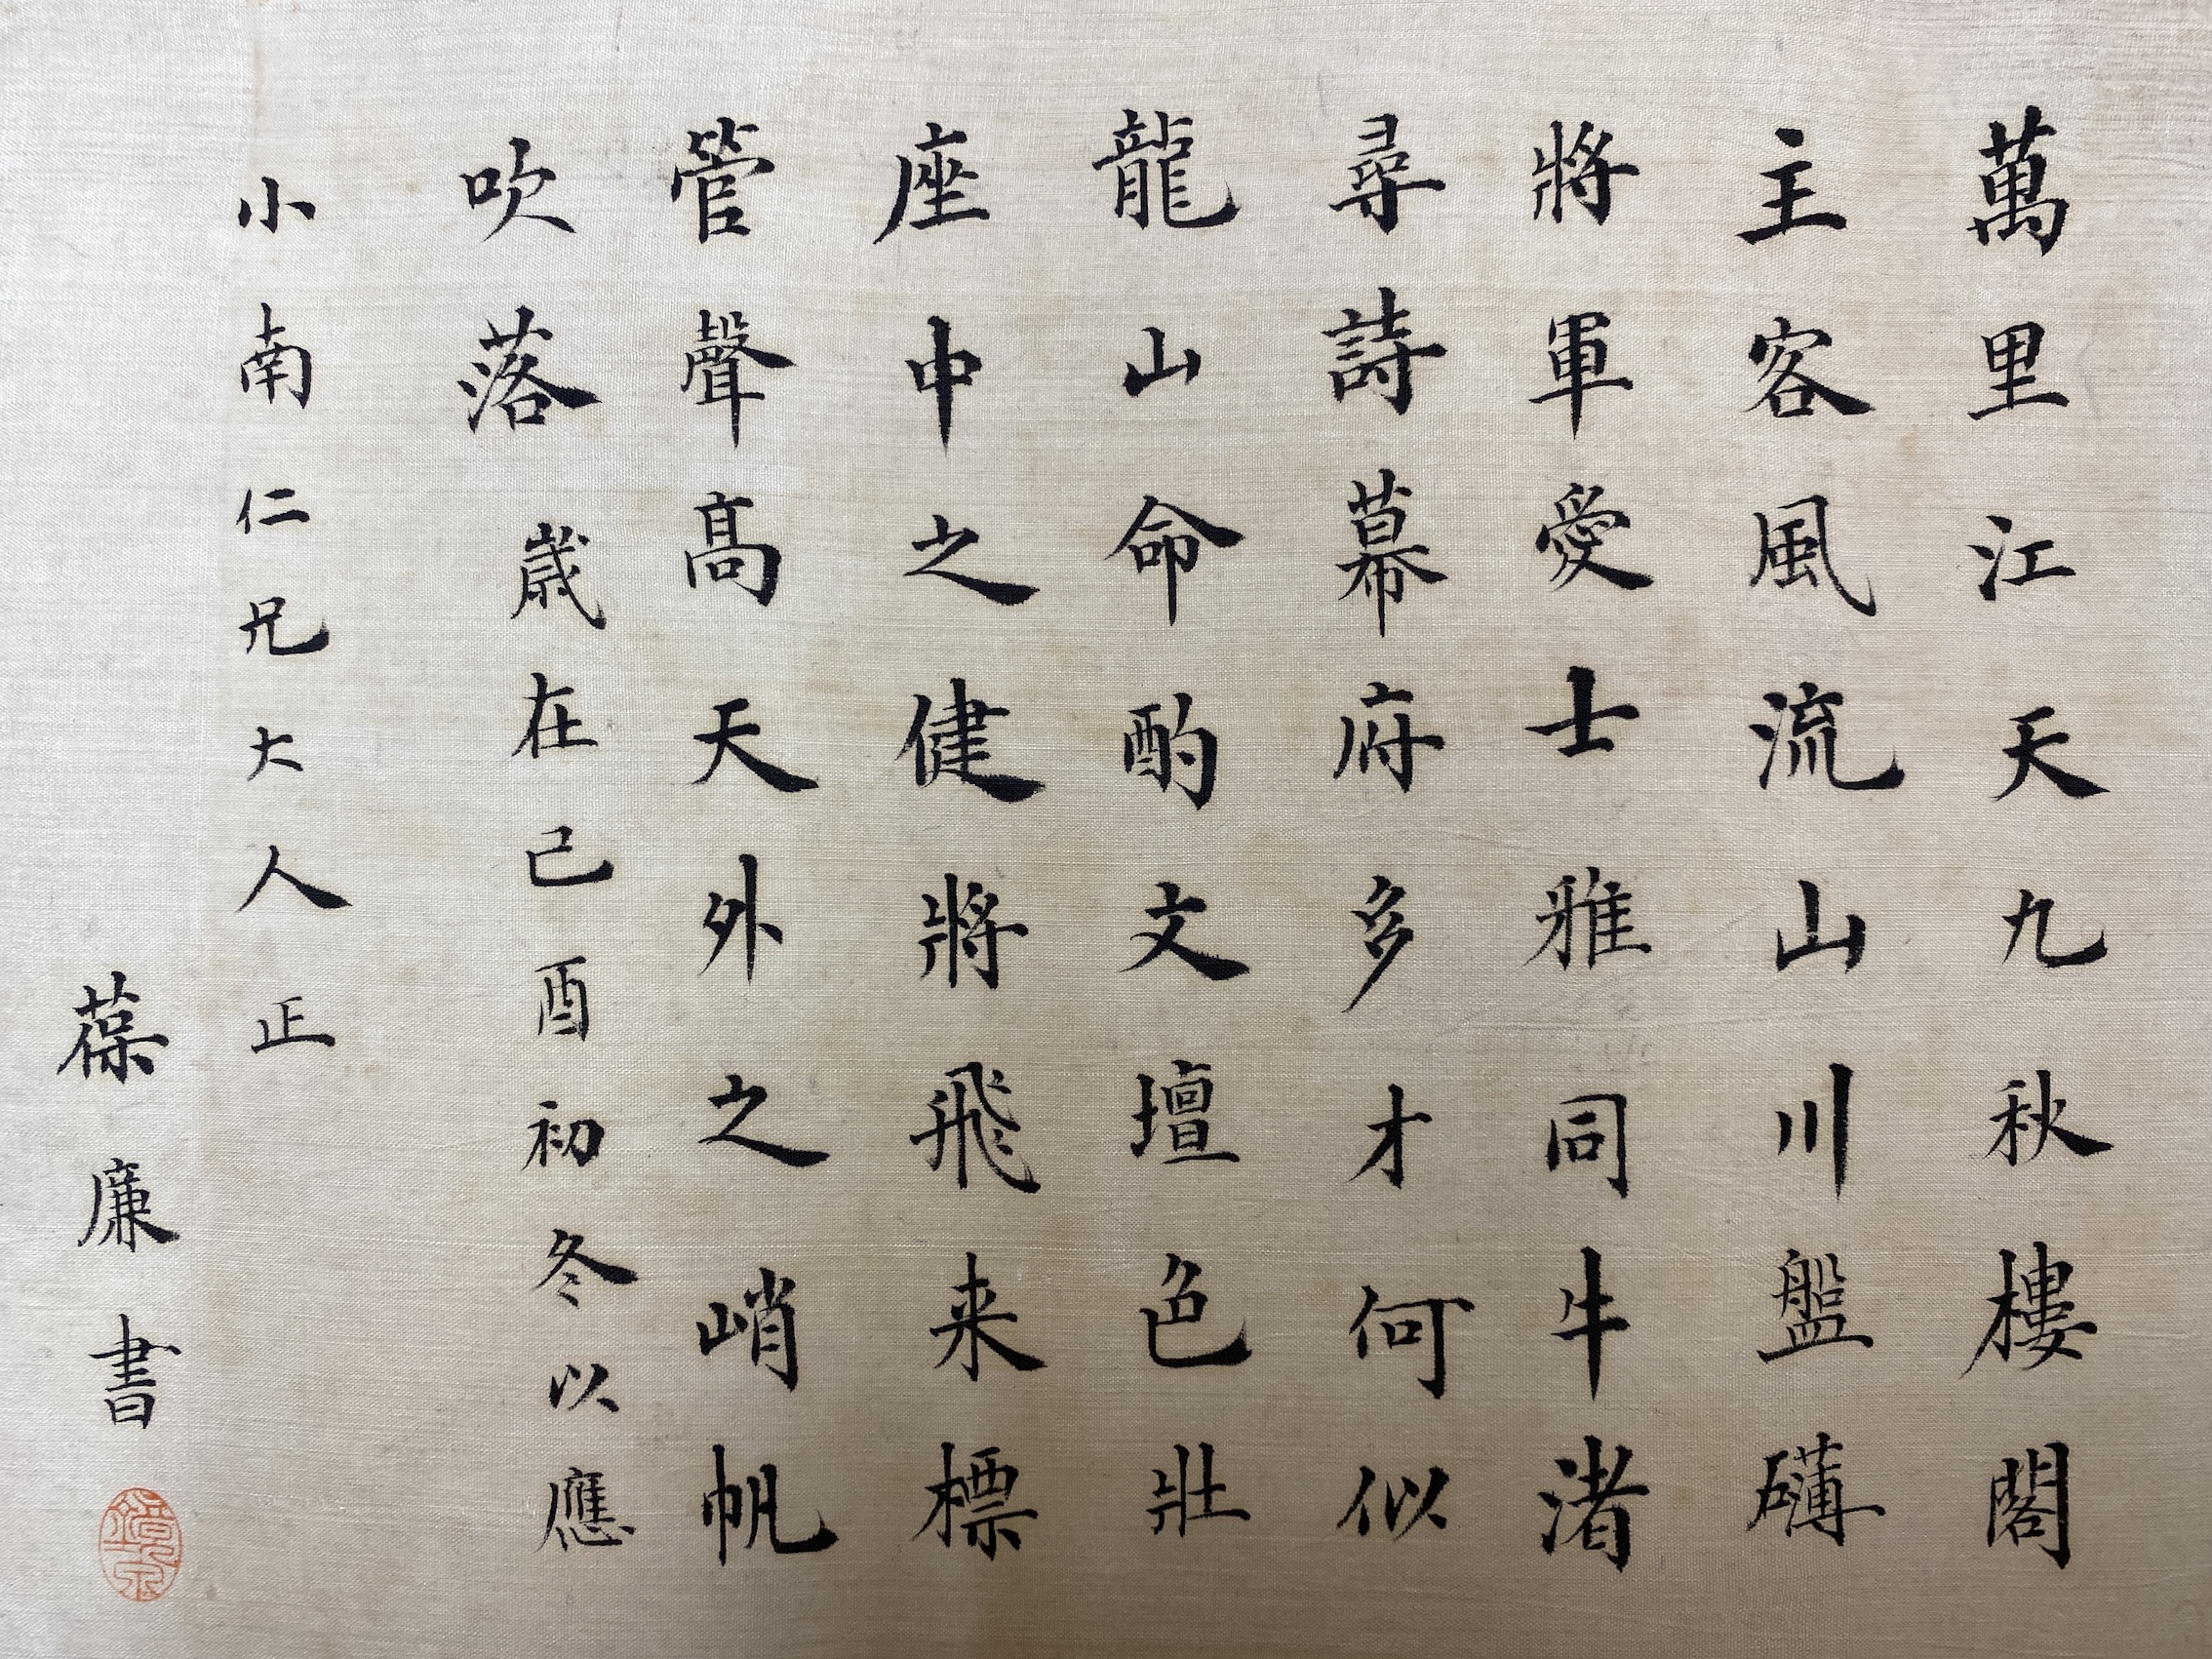 萬里江天九秋樓閣
主客風流山川盤礴
將軍愛士雅同牛渚
尋詩幕府多才何似
龍山命酌文壇色壯
座中之健將飛来標
管聲高天外之峭帆
吹落歲在己酉初冬以應
小南仁兄大人正
葆廉書